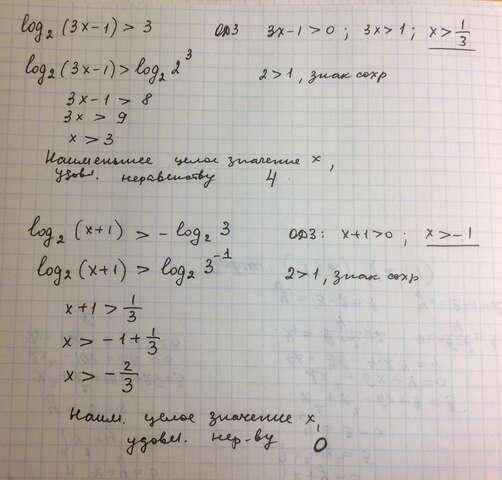 log₂(3x-1) > 3 ОДЗ 3x-1>0 ; 3x>1 ; x>1/3
log₂(3x-1) > log₂ 2³ 2>1, знак сохр
3x-1 > 8
3x > 9
x > 3
Наименьшее целое значение x,
удовл. неравенству 4.
log₂(x+1) > -log₂ 3 ОДЗ: x+1>0 ; x>-1
log₂(x+1) > log₂ 3⁻¹ 2>1, знак сохр
x+1 > 1/3
x > -1 + 1/3
x > -2/3
Наим. целое значение x,
удовл. нер-ву 0